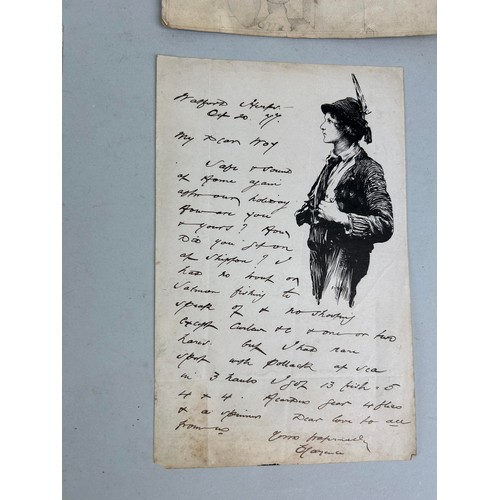 Watford Herts
Oct 20 '77.
My Dear Roy
Safe & sound
at Home again
after our holiday
How are you
& yours? How
Did you get on
at Shippon? I
had no work on
Salmon fishing to
speak of & no shooting
except Curlew &c & one or two
hares. but I had rare
sport with Pollack at sea
in 3 hauls I got 13 fish. 5
4 & 4. gear 4 flies
& a spinner Dear love to all
from us
Yours
Clarence